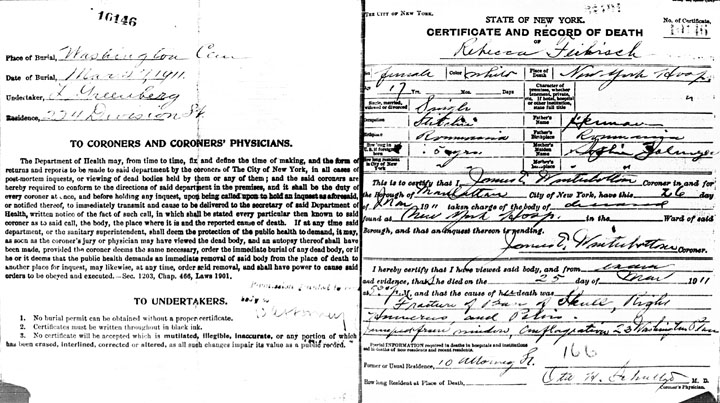 16146
Place of Burial, Washington Cem
Date of Burial, Mar 27 1911
Undertaker, Greenberg
Residence, 224 Division St
TO CORONERS AND CORONERS' PHYSICIANS.
The Department of Health may, from time to time, fix and define the time of making, and the form of
returns and reports to be made to said department by the coroners of The City of New York, in all cases of
post-mortem inquests, or viewing of dead bodies held by them or any of them; and the said coroners are
hereby required to conform to the directions of said department in the premises, and it shall be the duty
every coroner at once, and before holding any inquest, upon being called upon to hold an inquest as aforesaid,
or notified thereof, to immediately transmit and cause to be delivered to the secretary of said Department of
Health, written notice of the fact of such call, in which shall be stated every particular then known to said coroner
as to said call, the body, the place where it is and the reported cause of death. If at any time said
department, or the sanitary superintendent, shall deem the protection of the public health to demand, it may,
as soon as the coroner's jury or physician may have viewed the dead body, and an autopsy thereof shall have
been made, provided the coroner deems the same necessary, order the immediate burial of any dead body, or if
he or it deems that the public health demands an immediate removal of said body from the place of death to
another place for inquest, may likewise, at any time, order said removal, and shall have power to cause said
orders to be obeyed and executed.—Sec. 1203, Chap. 466, Laws 1901.
TO UNDERTAKERS.
1. No burial permit can be obtained without a proper certificate.
2. Certificates must be written throughout in black ink.
3. No certificate will be accepted which is mutilated, illegible, inaccurate, or any portion of which
has been erased, interlined, corrected or altered, as all such changes impair its value as a public record.
THE CITY OF NEW YORK.
STATE OF NEW YORK.
No. of Certificate,
CERTIFICATE AND RECORD OF DEATH
16146
OF
Rebecca Feibisch
female Color white Place of Death New York Hosp
17 Yrs. Mos. Days
Character of premises, whether tenement, private, etc. If hotel, hospital or other institution, state full title
Single, married, widowed or divorced Single
Occupation Father's Name Herman
Birthplace Roumania Father's Birthplace Roumania
How long in U.S. if foreign born 5 yrs Mother's Maiden Name
How long resident in City of New York Mother's Birthplace
This is to certify that I, James E. Winterbottom Coroner in and for
the Borough of Manhattan City of New York, have this 26 day
of Mar 1911 taken charge of the body of deceased
found at New York Hosp. in the Ward of said
Borough, and that an inquest thereon is pending.
James E. Winterbottom Coroner.
I hereby certify that I have viewed said body, and from
and evidence, that she died on the 25 day of Mar 1911
at M. and that the cause of her death was
Fracture of Base of Skull, Right
Humerus and Pelvis.
Jumped from window, Conflagration 23 Washington Place
Special INFORMATION required in deaths in hospitals and institutions
and in deaths of non-residents and recent residents.
166
Former or Usual Residence, 10 Attorney St.
How long Resident at Place of Death, Otto H. Schultze M. D.
Coroner's Physician.